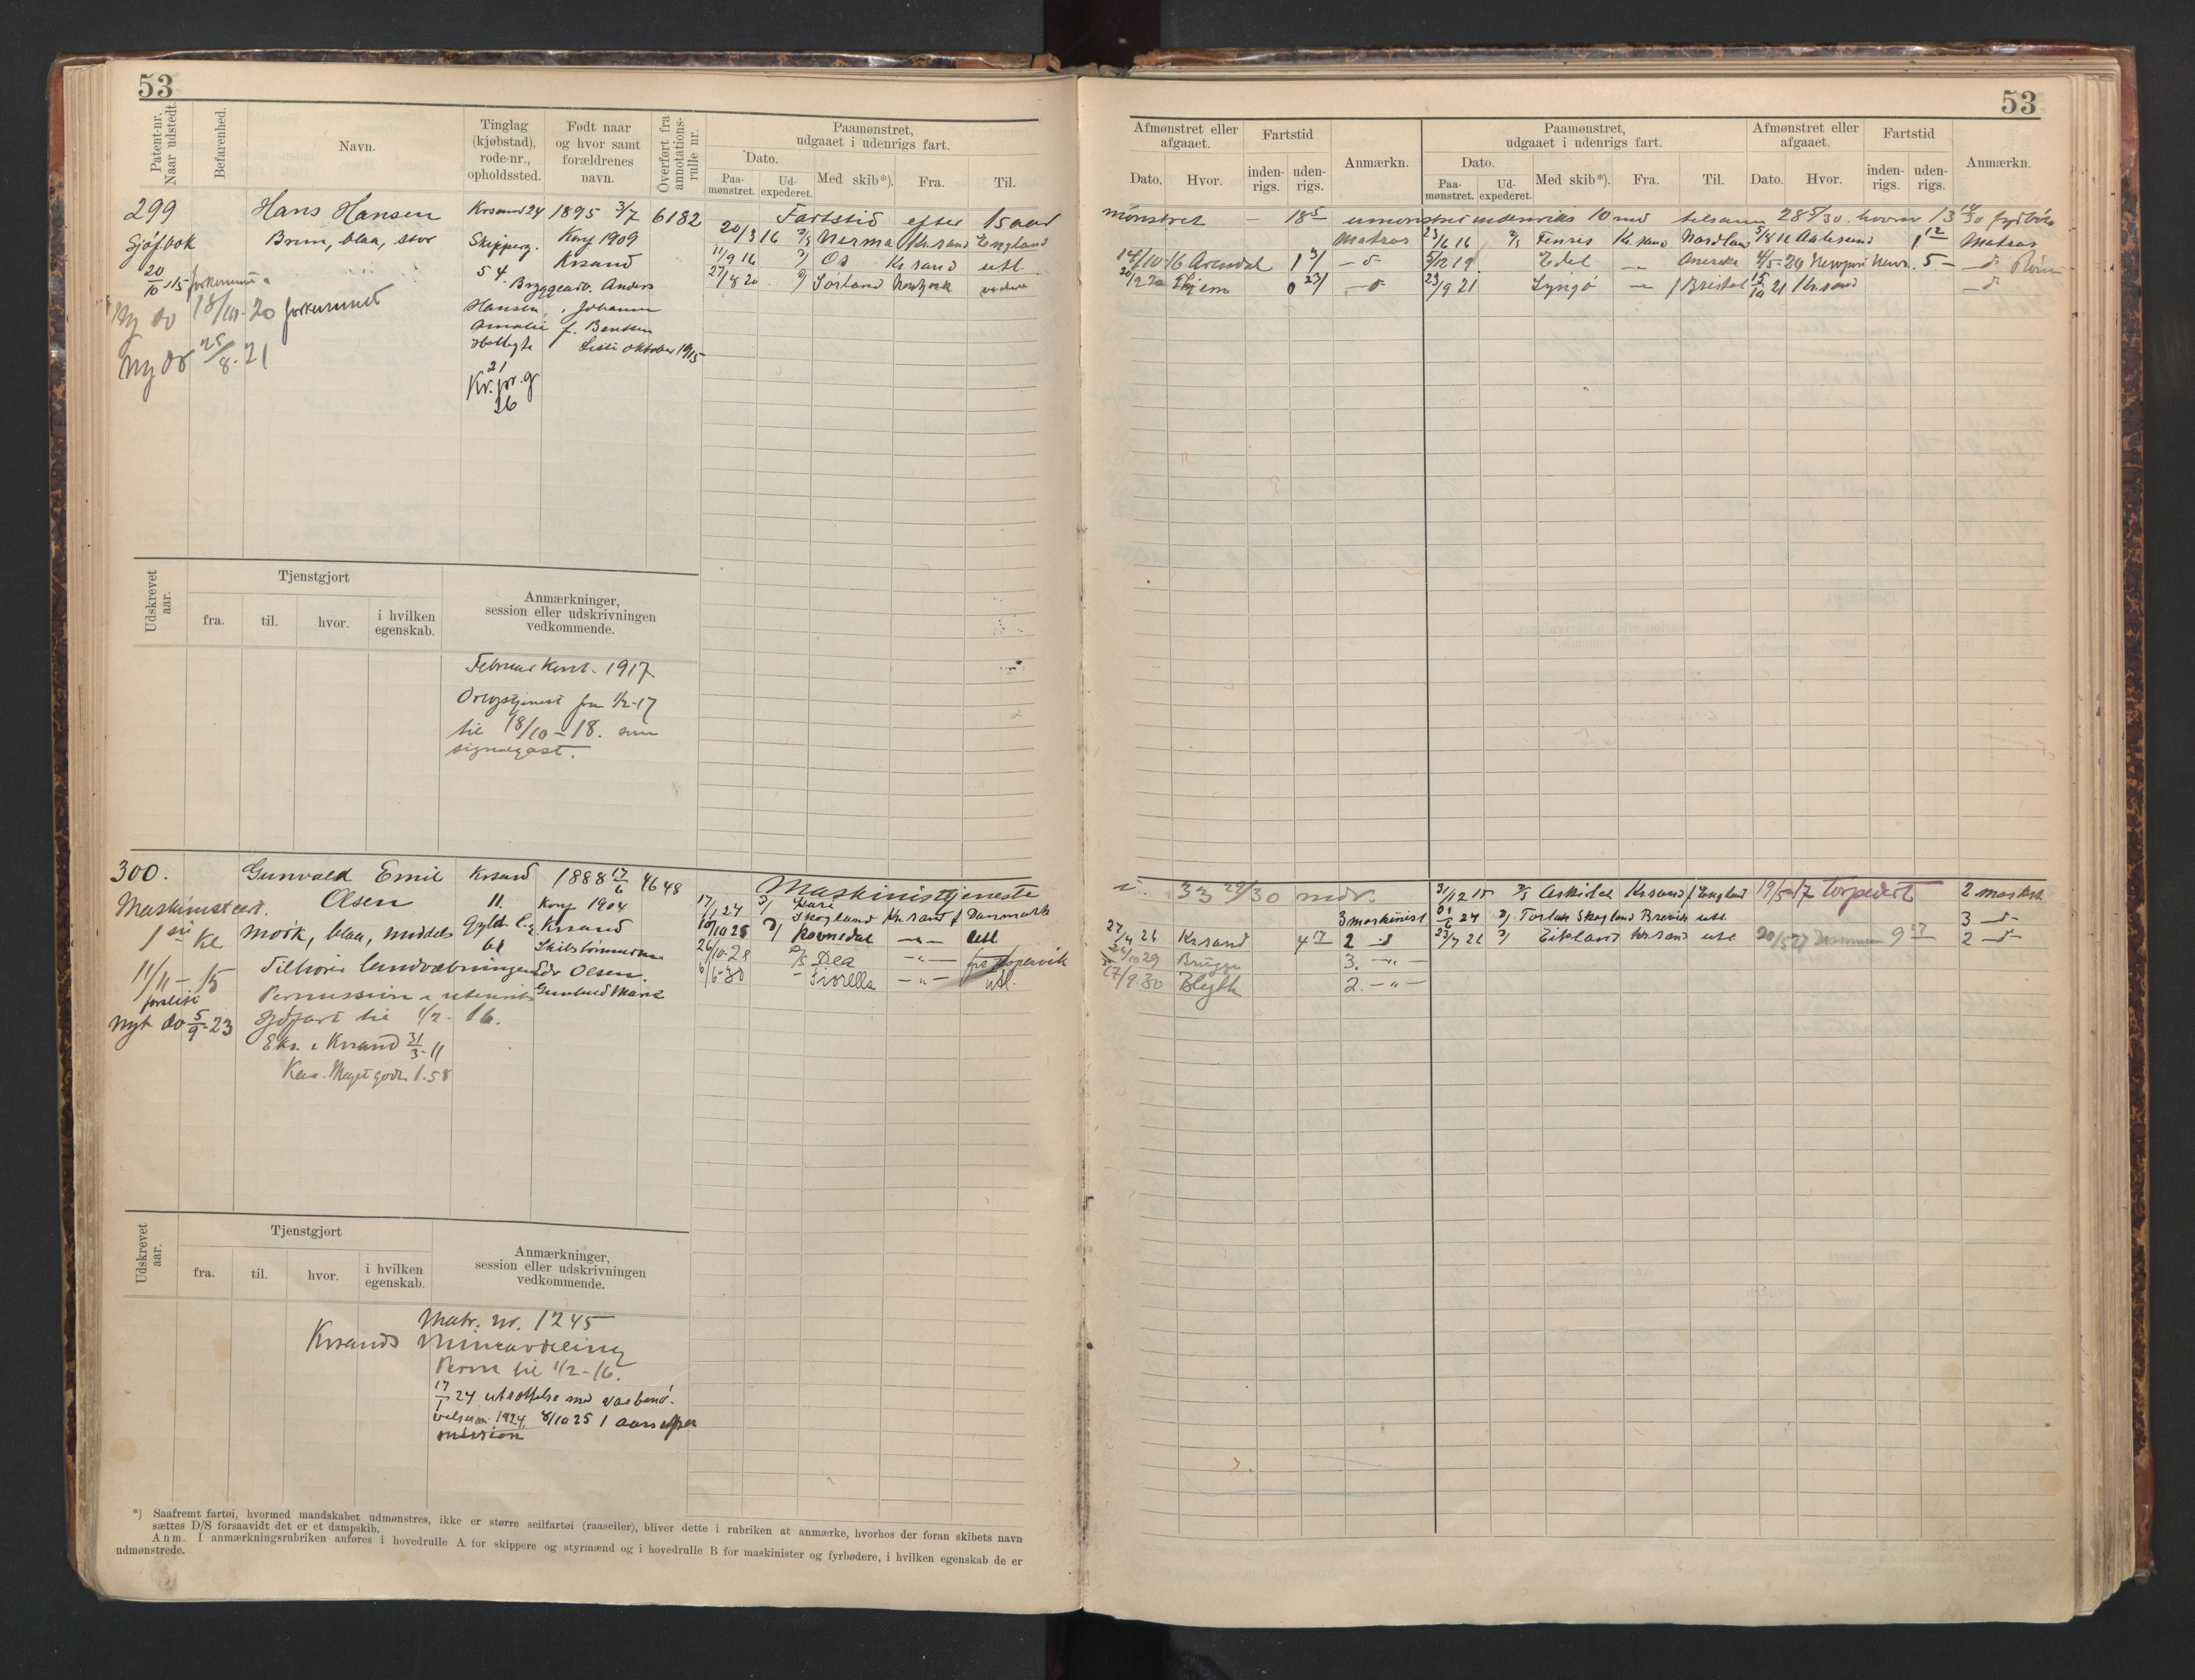 53
Patent-nr. Naar udstedt.
Befarenhed.
Navn.
Tinglag (kjøbstad), rode-nr., opholdssted.
Født naar og hvor samt forældrenes navn.
Overført fra annotations-rulle nr.
Paamønstret, udgaaet i udenrigs fart.
Dato.
Paa-mønstret.
Ud-expederet.
Med skib*).
Fra.
Til.
299
Hans Hansen
Krsand 24
1895 3/7
6182
Fartstid efter 15 aar
Sjøf.bok
Brun, blaa, stor
Skipperg.
Konf 1909
20/3 16
Nerma
Kr.sand
England
20/10-15 forkommet
54
Krsand
11/9 16
Os
Kr.sand
utl.
Bryggearb. Anders
27/8 20
Sørland
Newyork
Ny do 18/10-20 forkommet
Hansen, Johanne
Amalie f. Bentsen
Ny do 25/8-21
Liste oktober 1915
21
26
Udskrevet aar.
Tjenstgjort
fra.
til.
hvor.
i hvilken egenskab.
Anmærkninger, session eller udskrivningen vedkommende.
Februar Kont. 1917
Orlogstjenest fra 1/2-17
til 18/10-18. som
signalgast.
300.
Gunvald Emil
Krsand
1888 17/6
4648
Maskinisttjeneste
Maskinistcert.
Olsen
11.
Konf 1904
17/1 24
Kari Skogland
Kr.sand
f Danmark
1ste Kl
Mørk, blaa, middels
Krsand
10/10 25
Ravnedal
Utl
Skibstømmerm.
26/10-28
Dea
fra Kopervik
11/11-15
Tilhører landværbningen
Edv Olsen.
6/6-30
Fiorella
utl.
forlist
Permission i utenriks
Gunhild Marie
Nyt do 5/9-23
sjøfart til 1/2-16.
Eks. i Krsand 31/3-11
Kar. Meget godt 1.58
Udskrevet aar.
Tjenstgjort
fra.
til.
hvor.
i hvilken egenskab.
Anmærkninger, session eller udskrivningen vedkommende.
Matr. nr. 1245
Krsands Mineavdeling
Perm til 1/2-16.
17/1 24 utsættelse med vaabenø-
velser i 1924. 8/10 25 1 aars per
mission
*) Saafremt fartøi, hvormed mandskabet udmønstres, ikke er større seilfartøi (raaseiler), bliver dette i rubriken at anmærke, hvorhos der foran skibets navn
sættes D/S forsaavidt det er et dampskib.
Anm. I anmærkningsrubriken anføres i hovedrulle A for skippere og styrmænd og i hovedrulle B for maskinister og fyrbødere, i hvilken egenskab de er
udmønstrede.
53
Afmønstret eller afgaaet.
Fartstid
Anmærkn.
Paamønstret, udgaaet i udenrigs fart.
Afmønstret eller afgaaet.
Fartstid
Anmærkn.
Dato.
Hvor.
inden-rigs.
uden-rigs.
Dato.
Paa-mønstret.
Ud-expederet.
Med skib*).
Fra.
Til.
Dato.
Hvor.
inden-rigs.
uden-rigs.
mønstret - 18 5 umønstret indenriks 10 md tilsam 28 5/30. hvorav 13 14/30 fyrbøter
Matros
23/6 16
Fenris
Kr.sand
Nordland
5/8 16
Aalesund
1 12
Matros
14/10-16
Arendal
1 3/
5/12 19
Edel
Amerika
4/5-20
Newport News.
5
0 23/
23/9 21
Lyngø
f Bristol
15/10 21
Kr.sand
33 29/30 mdr.
31/12 15
Askidal
Krsand
f England
19/5-17
torpedert
2 maskst
3 maskinist
Torlak Skogland
Brevik
utl.
3 -d-
27/4 26
Krsand
4 17
2 -d
23/7 26
Eikland
Kr.sand
utl
20/5 27
9 17
2 -d-
26/10 29
Brügge
3. -"-
17/9-30
Blyth
2. -"-